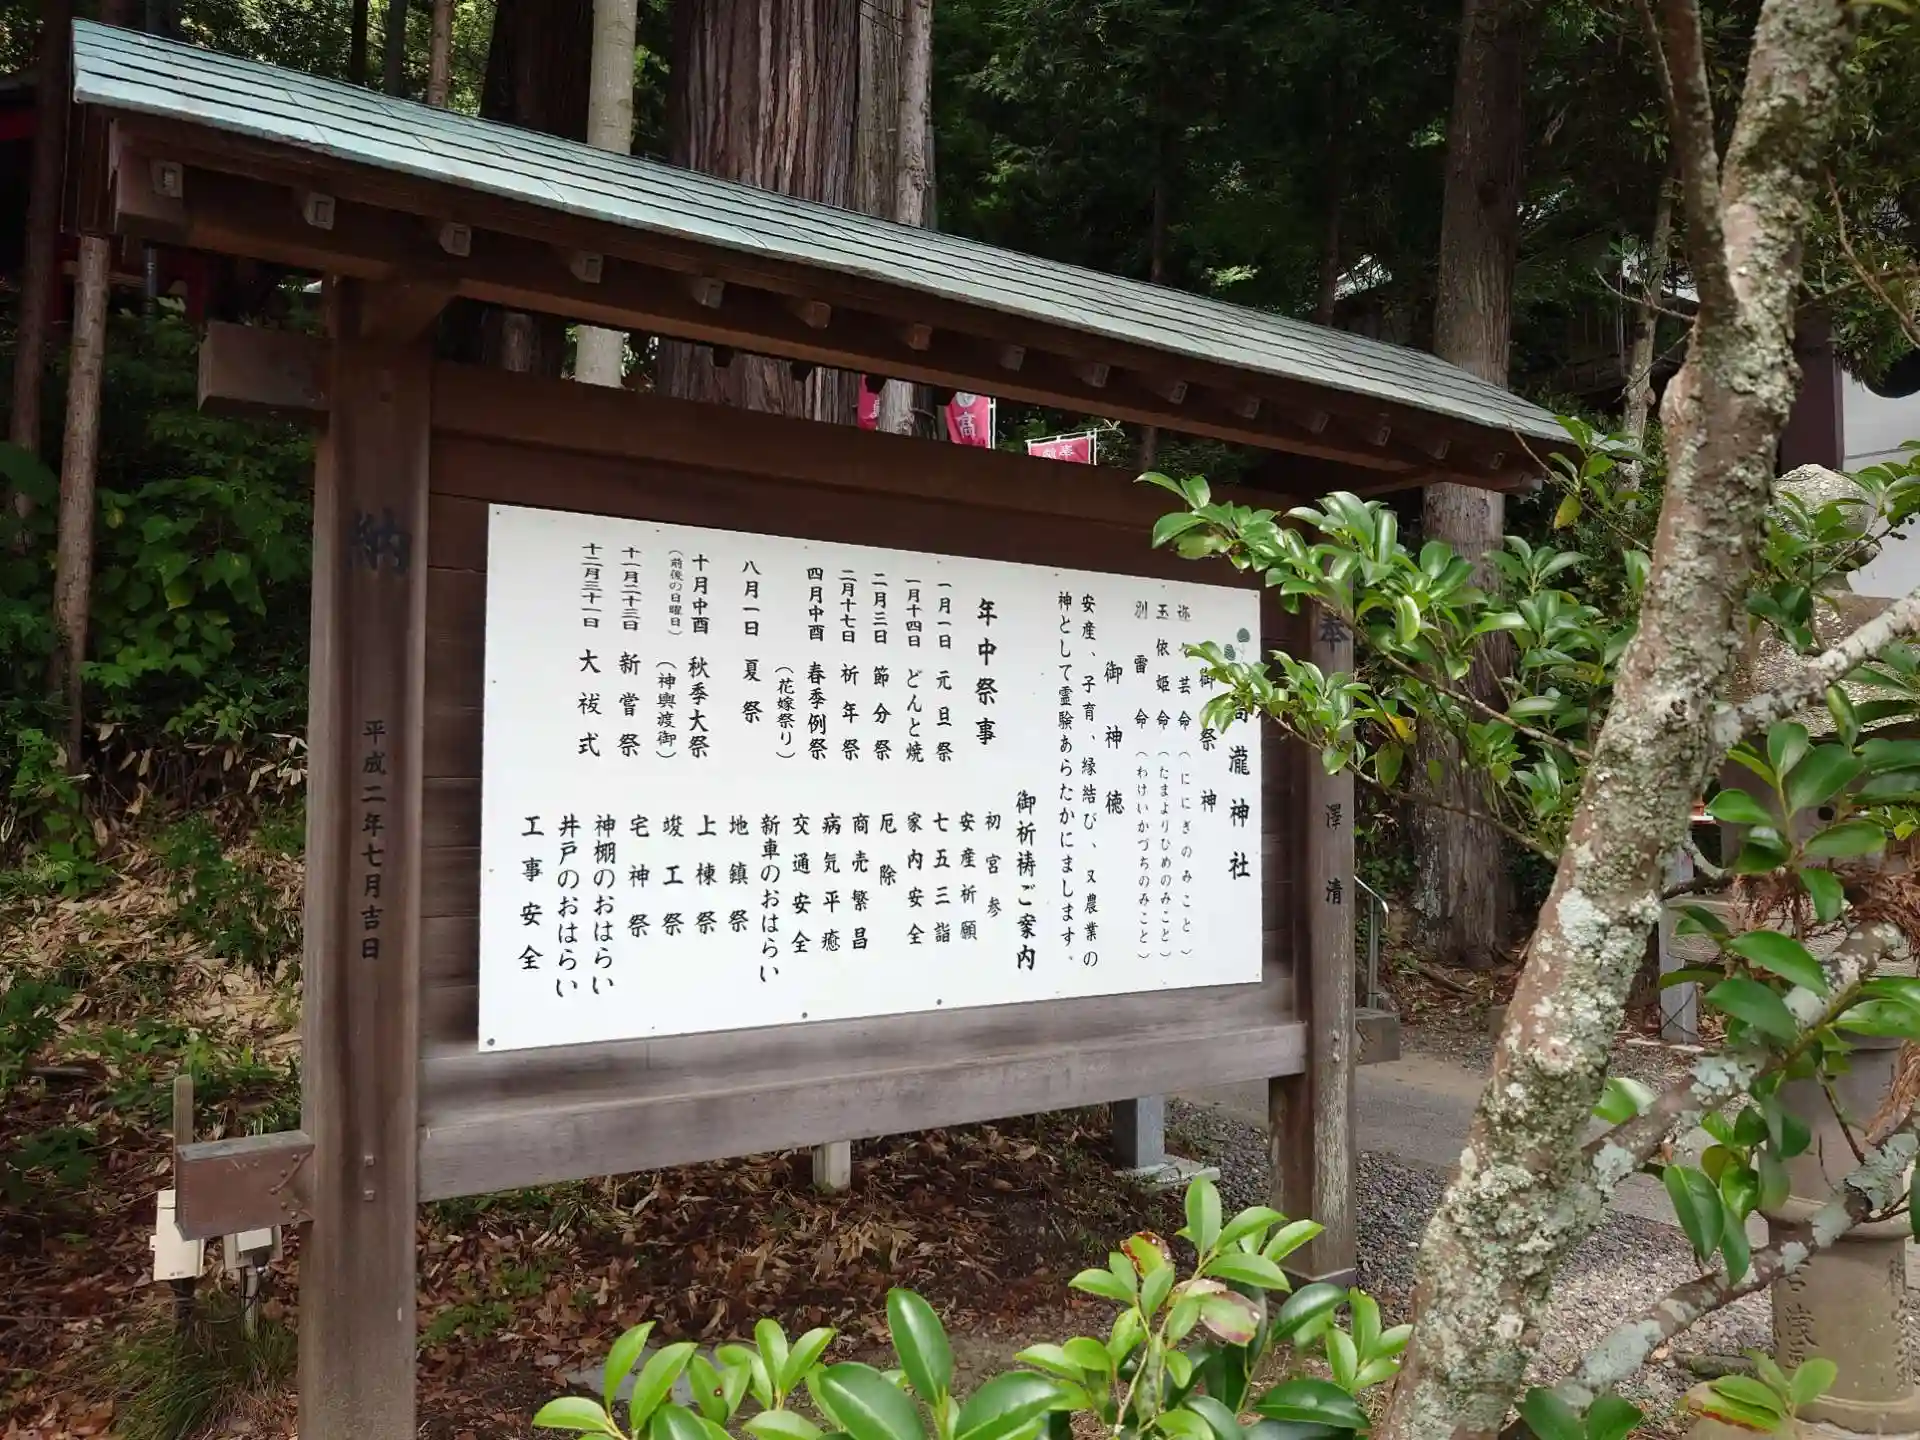 高瀧神社
御祭神
弥々芸命（ににぎのみこと）
玉依姫命（たまよりひめのみこと）
別雷命（わけいかづちのみこと）
御神徳
安産、子育、縁結び、又農業の
神として霊験あらたかにまします。
御祈祷ご案内
初宮参
安産祈願
七五三詣
家内安全
厄除
商売繁昌
病気平癒
交通安全
新車のおはらい
地鎮祭
上棟祭
竣工祭
宅神祭
神棚のおはらい
井戸のおはらい
工事安全
年中祭事
一月一日 元旦祭
一月十四日 どんと焼
二月三日 節分祭
二月十七日 祈年祭
四月中酉 春季例祭
（花嫁祭り）
八月一日 夏祭
十月中酉 秋季大祭
（前後の日曜日）（神輿渡御）
十一月二十三日 新嘗祭
十二月三十一日 大祓式
奉
澤 清
納
平成二年七月吉日
高
奉